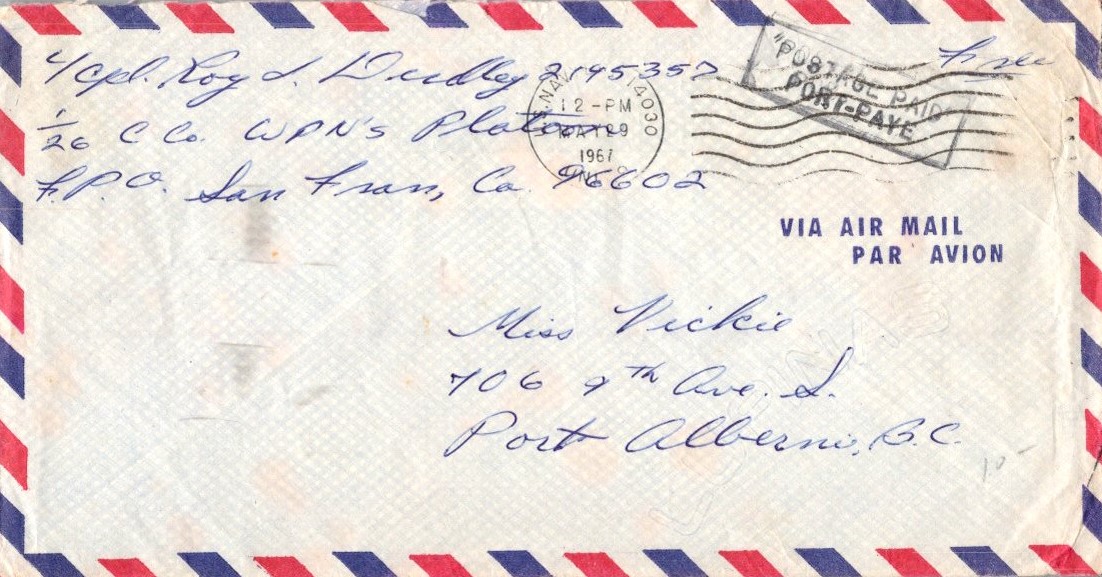 L/Cpl. Roy L. Dudley 2195357
Free
"POSTAGE PAID"
PORT-PAYÉ
1/26 C Co. WPN'S Platoon
12-PM
MAY 29
1967
14030
F.P.O. San Fran, Ca. 96602
VIA AIR MAIL
PAR AVION
Miss Vickie
706 9th Ave. S.
Port Alberni, B.C.
10-